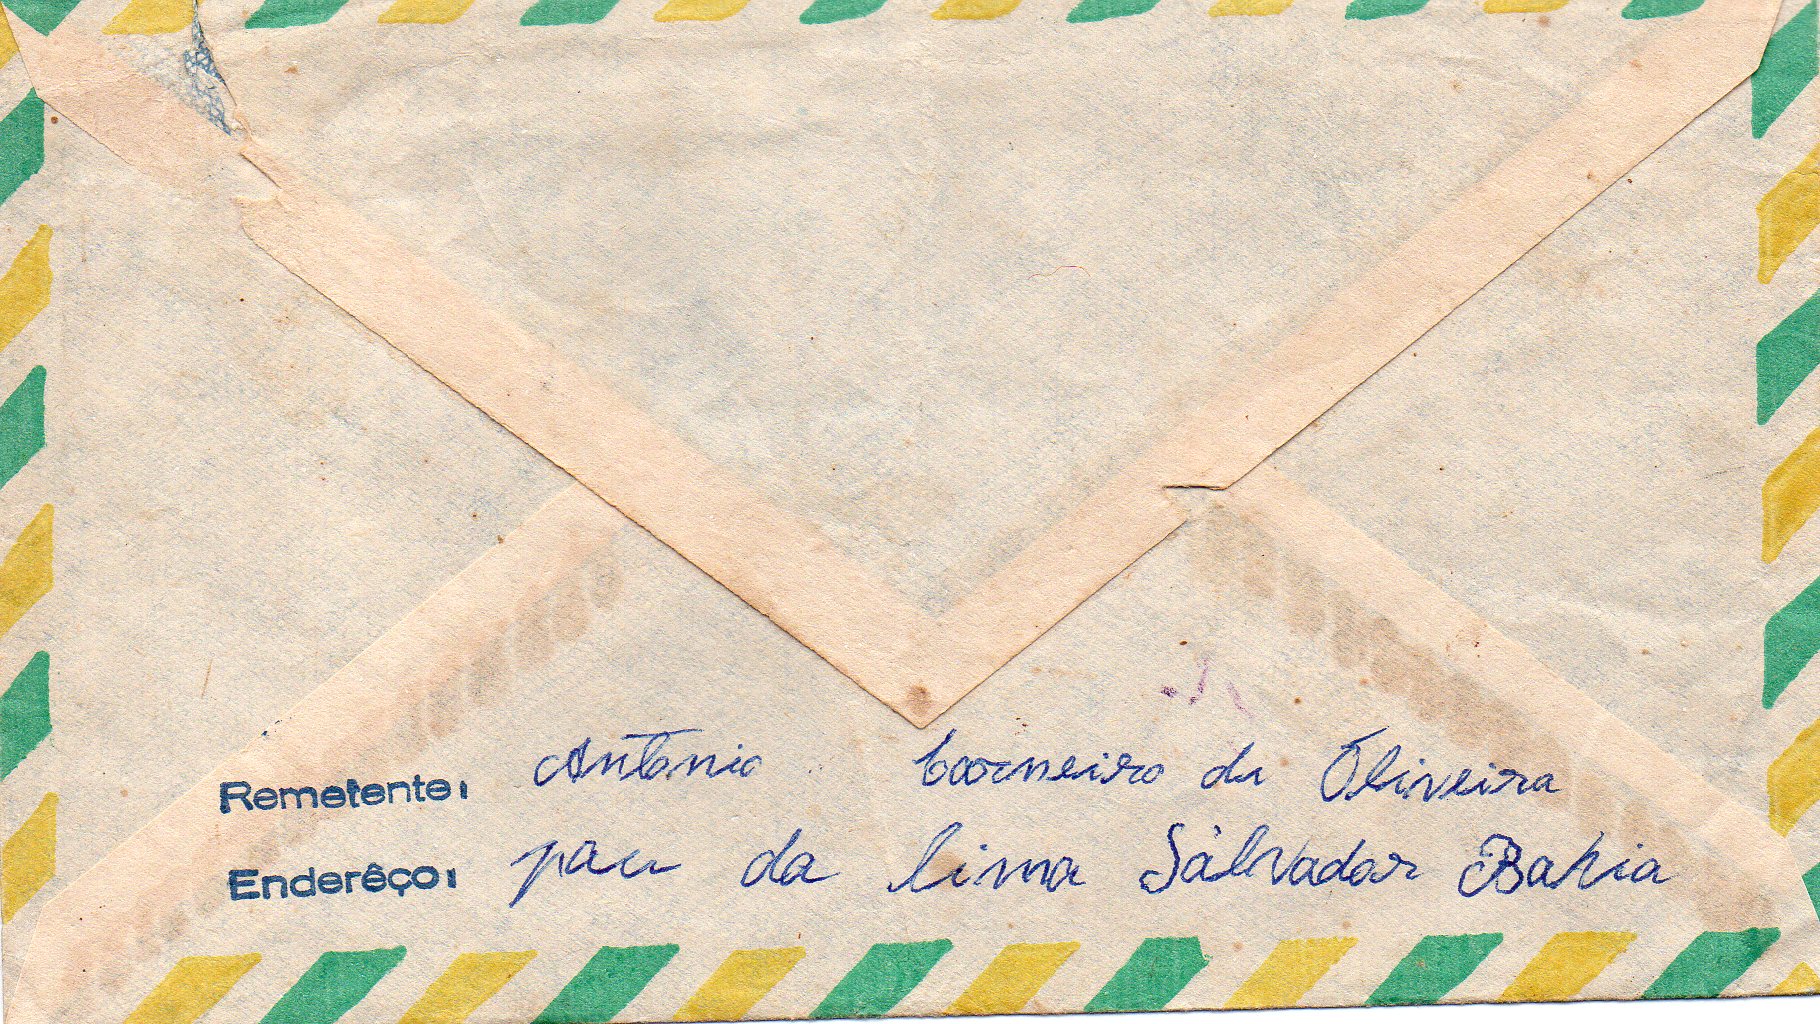 Remetente: Antonio Coorneiro da Oliveira
Enderêço: pau da lima Sálvador Bahia